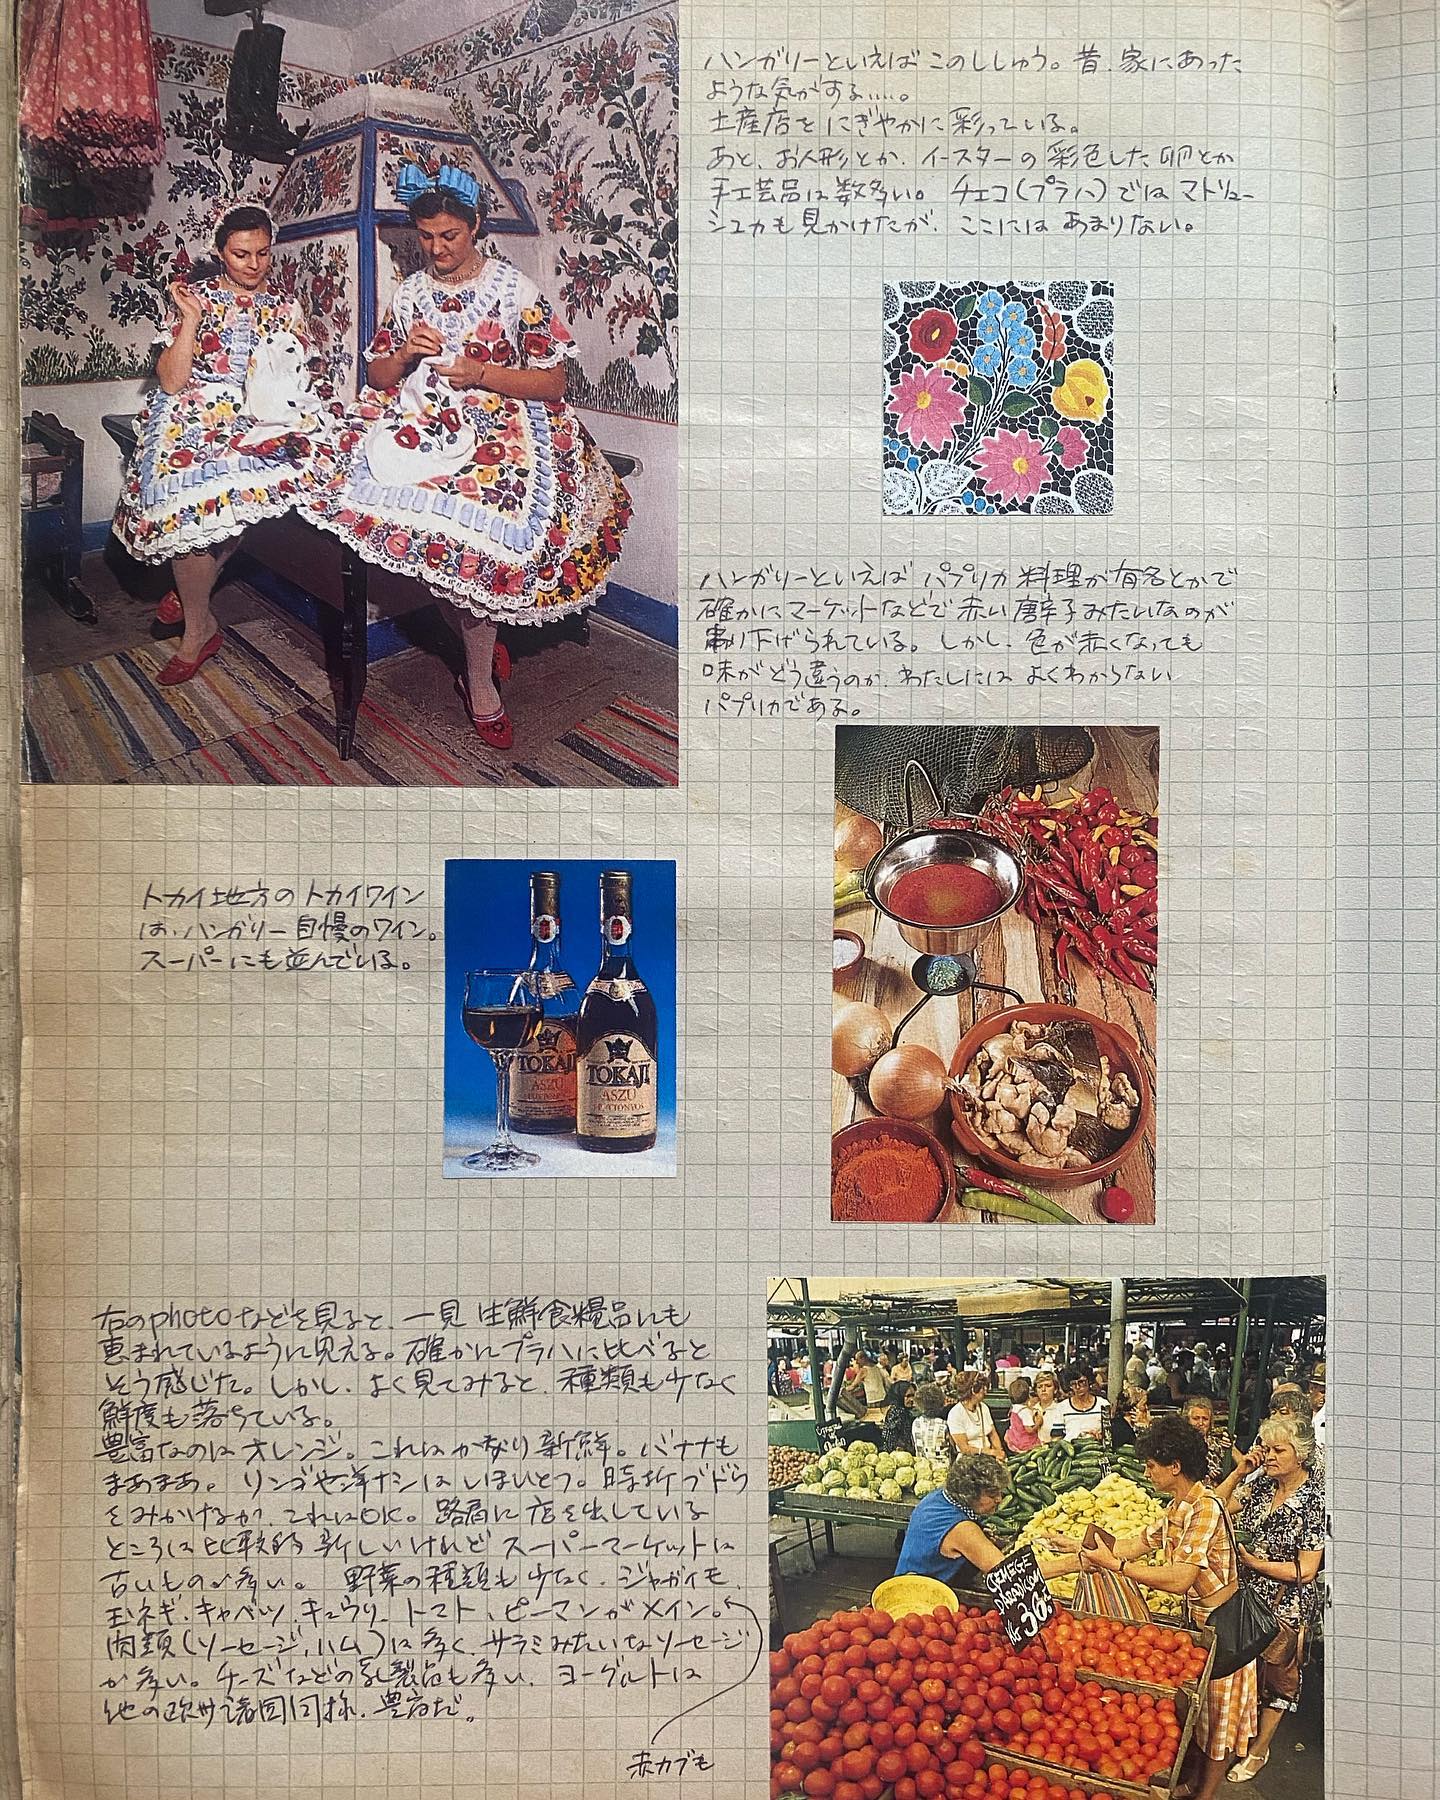 ハンガリーといえば このししゅう。昔、家にあった
ような気がする.....。
土産店を にぎやかに 彩っている。
あと、お人形とか、イースターの 彩色した 卵とか
手工芸品は数多い。 チェコ(プラハ)では マトリュー
シュカも 見かけたが、 ここには あまりない。
ハンガリーといえば パプリカ 料理が有名とかで
確かに マーケットなどで 赤い 唐辛子 みたいなのが
吊り下げられている。しかし、色が赤くなっても
味が どう違うのか、わたしには よくわからない
パプリカである。
トカイ地方の トカイワイン
は、ハンガリー 自慢のワイン。
スーパーにも 並んでいる。
TOKAJI
ASZÚ
TOKAJI
ASZÚ
PUTTONYOS
右のphotoなどを見ると、一見 生鮮食糧品にも
恵まれているように見える。確かにプラハに比べると
そう感じた。しかし、よく見てみると、種類も少なく
鮮度も落ちている。
豊富なのは オレンジ。これは かなり 新鮮。バナナも
まあまあ。 リンゴや洋ナシは いまひとつ。時折 ブドウ
をみかけるが、これはOK。路肩に 店を出している
ところは 比較的 新しいけれど スーパーマーケットは
古いものが多い。 野菜の種類も 少なく、ジャガイモ、
玉ネギ、キャベツ、キュウリ、トマト、ピーマンがメイン。
肉類(ソーセージ、ハム)は 多く、サラミみたいなソーセージ
が多い。チーズなどの乳製品も多い、ヨーグルトは
他の欧州諸国同様、豊富だ。
赤カブも
CSEMEGE
PARADICSOM
36